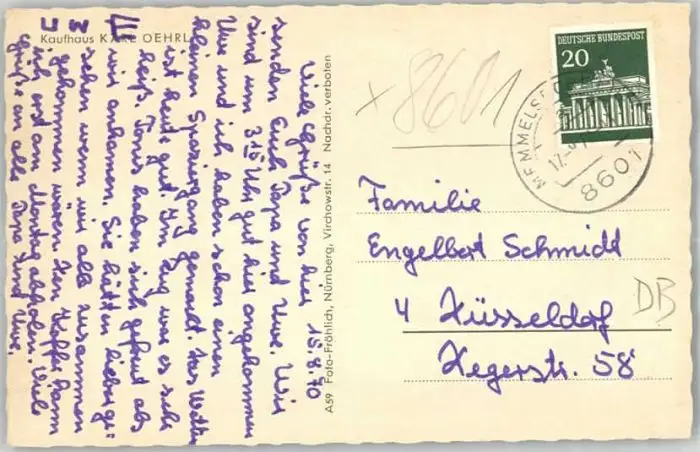 Kaufhaus KARL OEHRL
Viele Grüße von hier 15.8.70
senden Euch Papa und Uwe. Wir
sind um 3 15 Uhr gut hier angekommen
Uwe und ich haben schon einen
kleinen Spaziergang gemacht. Das Wetter
ist heute gut. Im Zug war es sehr
heiß. haben sich gefreut als
wir ankamen. Sie hätten lieber ge=
sehen wenn wir alle zusammen
gekommen wären. Den Koffer kann
ich erst am Montag abholen. Viele
Grüße an alle Papa und Uwe.
A59 Foto-Fröhlich, Nürnberg, Virchowstr. 14 Nachdr. verboten
x 8601
DEUTSCHE BUNDESPOST
20
MEMMELSD
17.
8601
Familie
Engelbert Schmidt
4 Düsseldorf
Degerstr. 58
DB